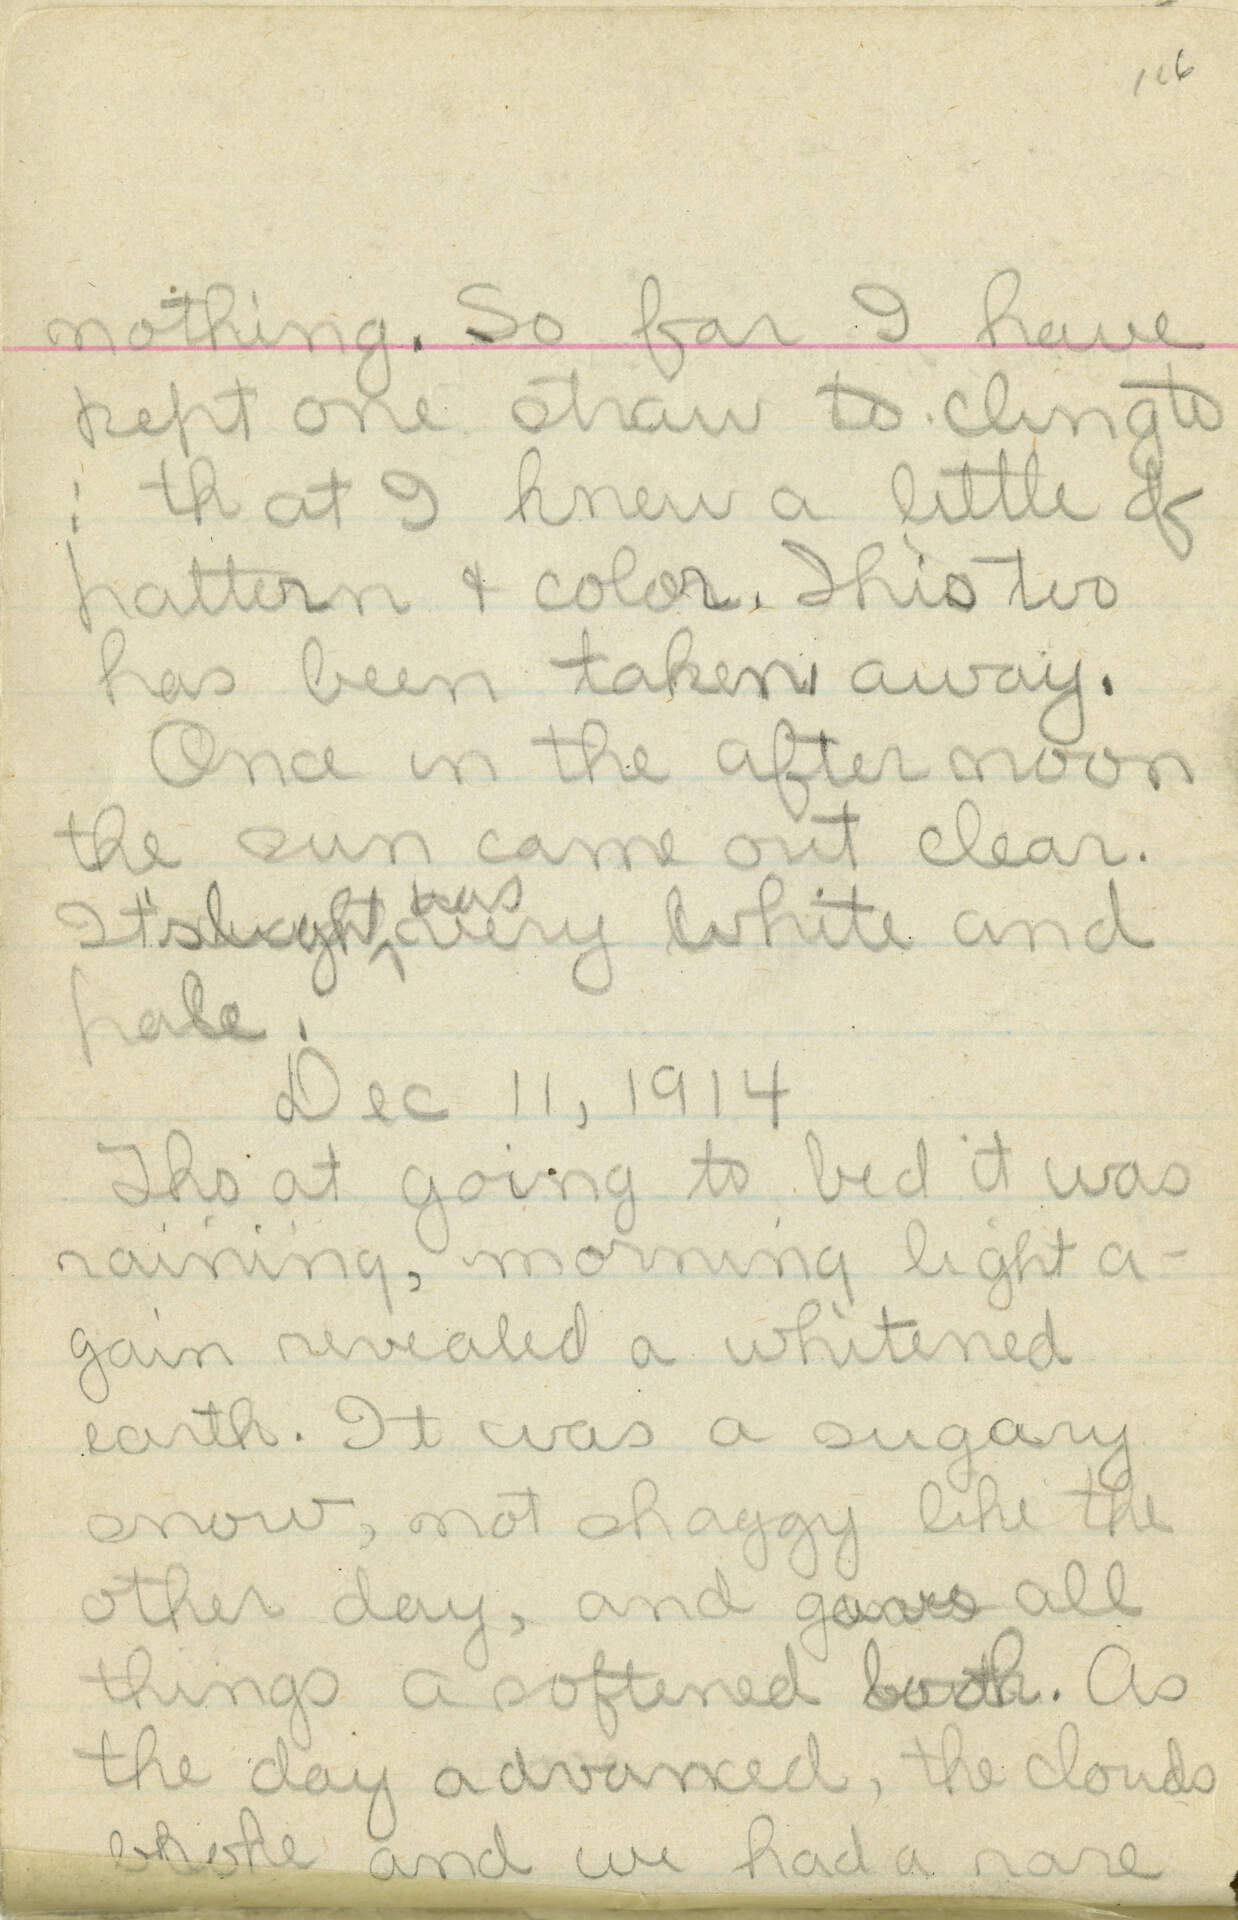 116
nothing. So far I have
kept one straw to cling to
: that I knew a little of
pattern & color. This too
has been taken away.
Once in the afternoon
the sun came out clear.
It's light was very white and
pale.
Dec 11, 1914
Tho at going to bed it was
raining, morning light a-
gain revealed a whitened
earth. It was a sugary
snow, not shaggy like the
other day, and gave all
things a softened look. As
the day advanced, the clouds
broke and we had a rare